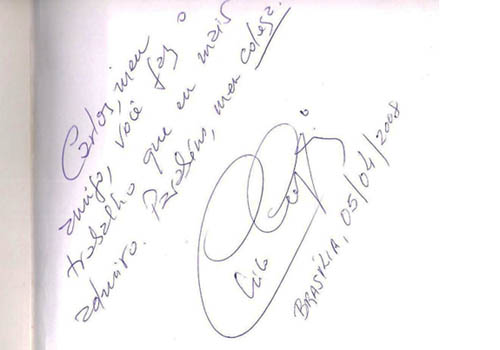 Carlos, meu
amigo, você faz o
trabalho que eu mais
admiro. Parabéns, meu colega.
BRASÍLIA, 05/04/2008